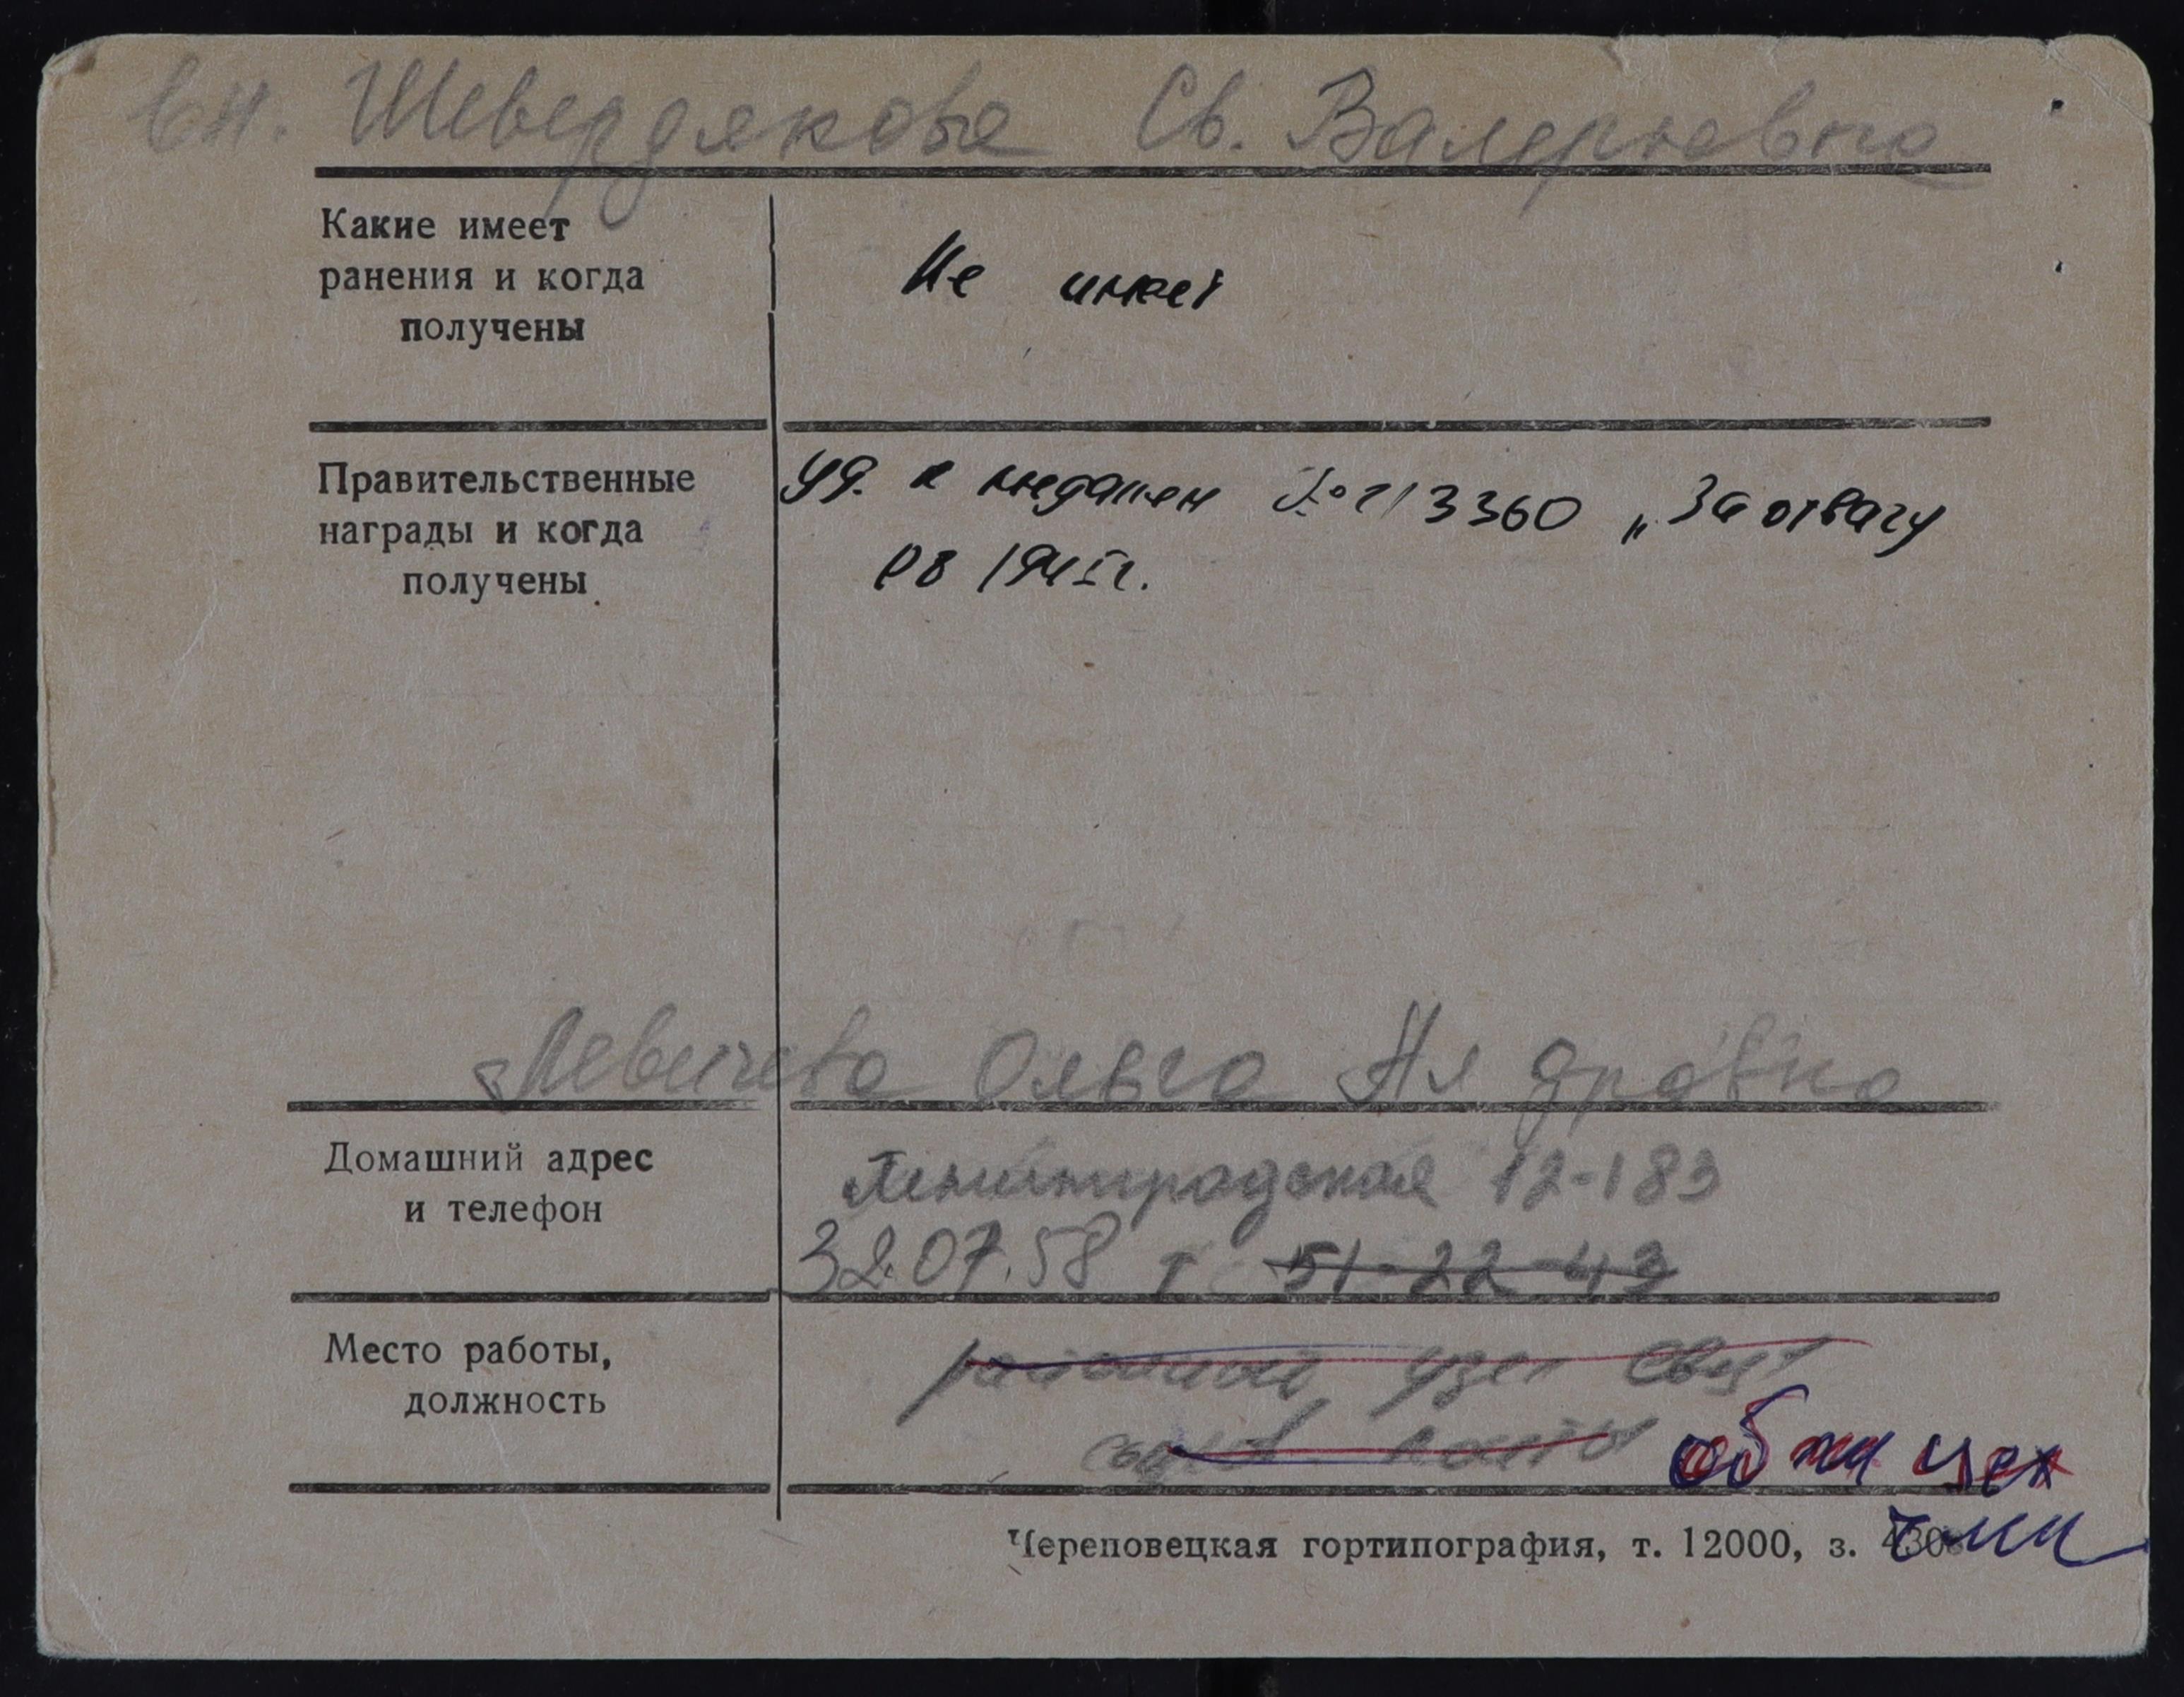 вн. Шевердякова Св. Валерьевна
Какие имеет
ранения и когда
получены
Не имеет
Правительственные
награды и когда
получены
уд. к медалям № 213360 „За отвагу
08 1945г.
Левичева Ольга Ал дровна
Домашний адрес
и телефон
Ленинградская 12-183
32.07.58 т 51-22-43
Место работы,
должность
районный узел связи
почты обж цех
чмк
Череповецкая гортипография, т. 12000, з.